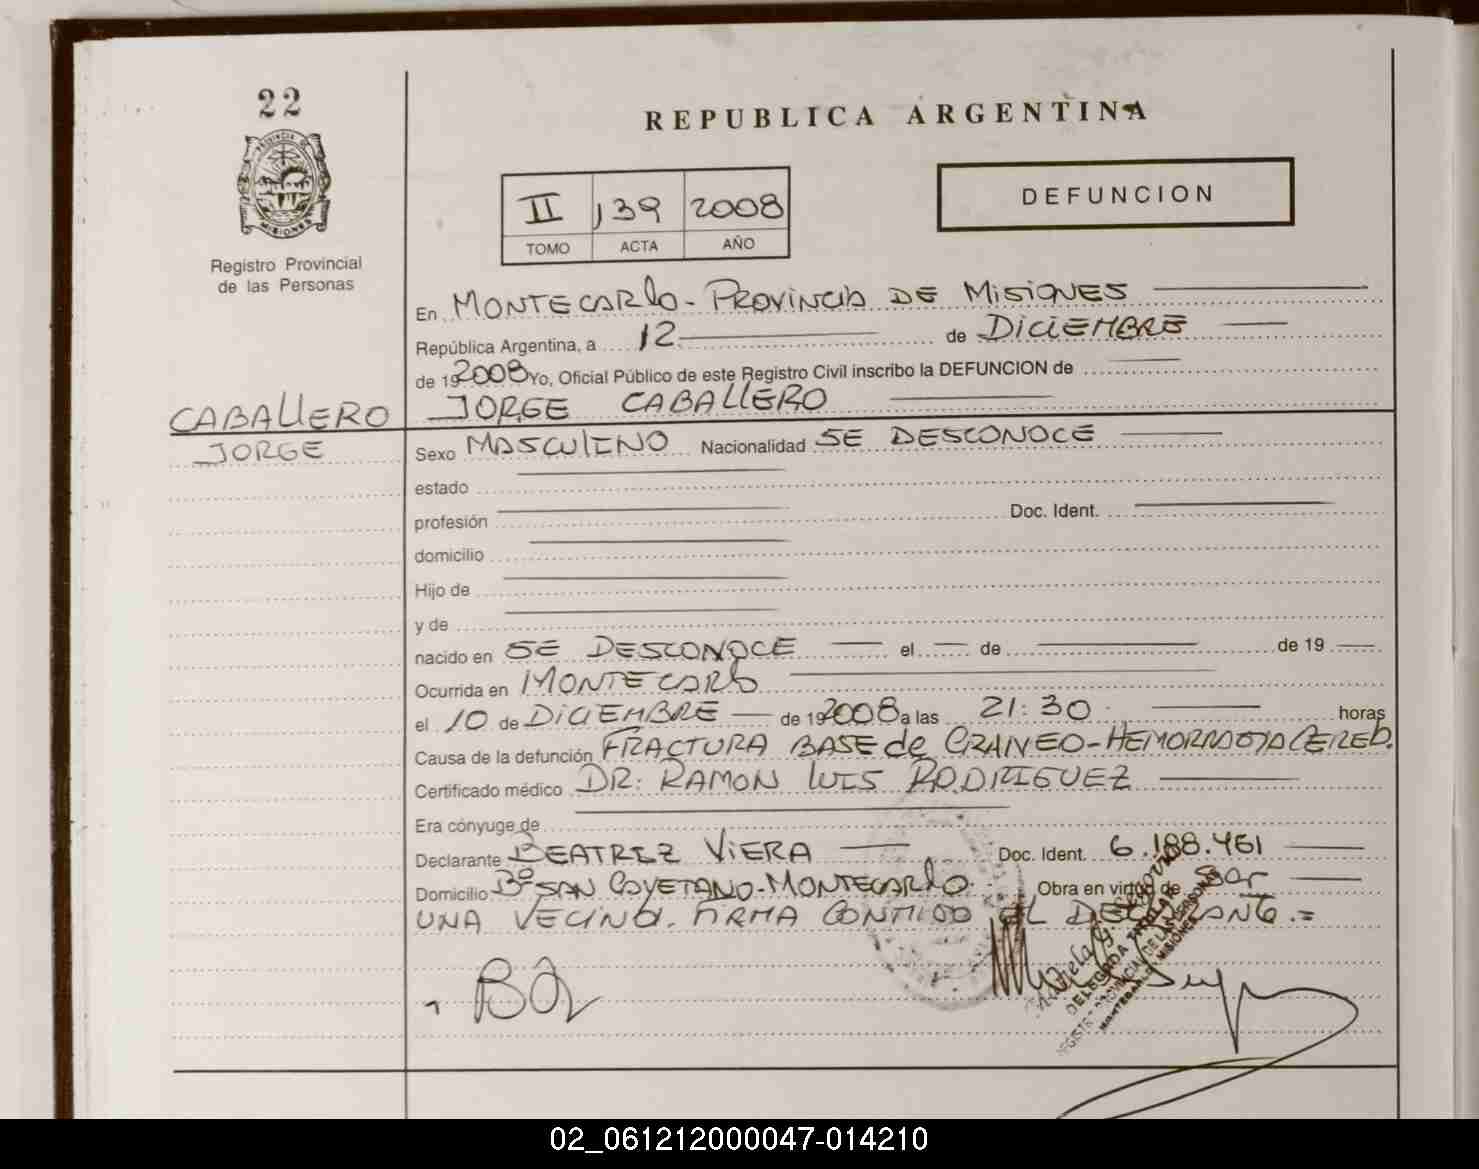 22
REPUBLICA ARGENTINA
PROVINCIA DE
MISIONES
Registro Provincial
de las Personas
II 139 2008
TOMO ACTA AÑO
DEFUNCION
En MONTECARLO - PROVINCIA DE MISIONES
República Argentina, a 12 de DICIEMBRE
de 192008 Yo, Oficial Público de este Registro Civil inscribo la DEFUNCION de
CABALLERO JORGE CABALLERO
JORGE
Sexo MASCULINO Nacionalidad SE DESCONOCE
estado
profesión Doc. Ident.
domicilio
Hijo de
y de
nacido en SE DESCONOCE el de de 19
Ocurrida en MONTECARLO
el 10 de DICIEMBRE de 192008 a las 21:30 horas
Causa de la defunción FRACTURA BASE de CRANEO - HEMORRAGIA CEREB.
Certificado médico DR: RAMON LUIS RODRIGUEZ
Era cónyuge de
Declarante BEATRIZ VIERA Doc. Ident. 6.188.461
Domicilio Bº SAN CAYETANO - MONTECARLO Obra en virtud de SER
UNA VECINA. FIRMA CONMIGO EL DECLARANTE.=
DELEGADA TITULAR
REGISTRO PROVINCIAL DE LAS PERSONAS
MISIONES
02_061212000047-014210